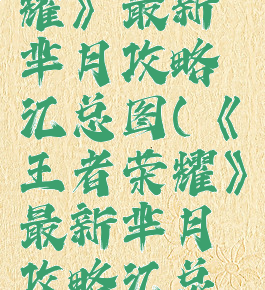 耀》最新
芈月攻略
汇总图(《
王者荣耀》
最新芈月
攻略汇总